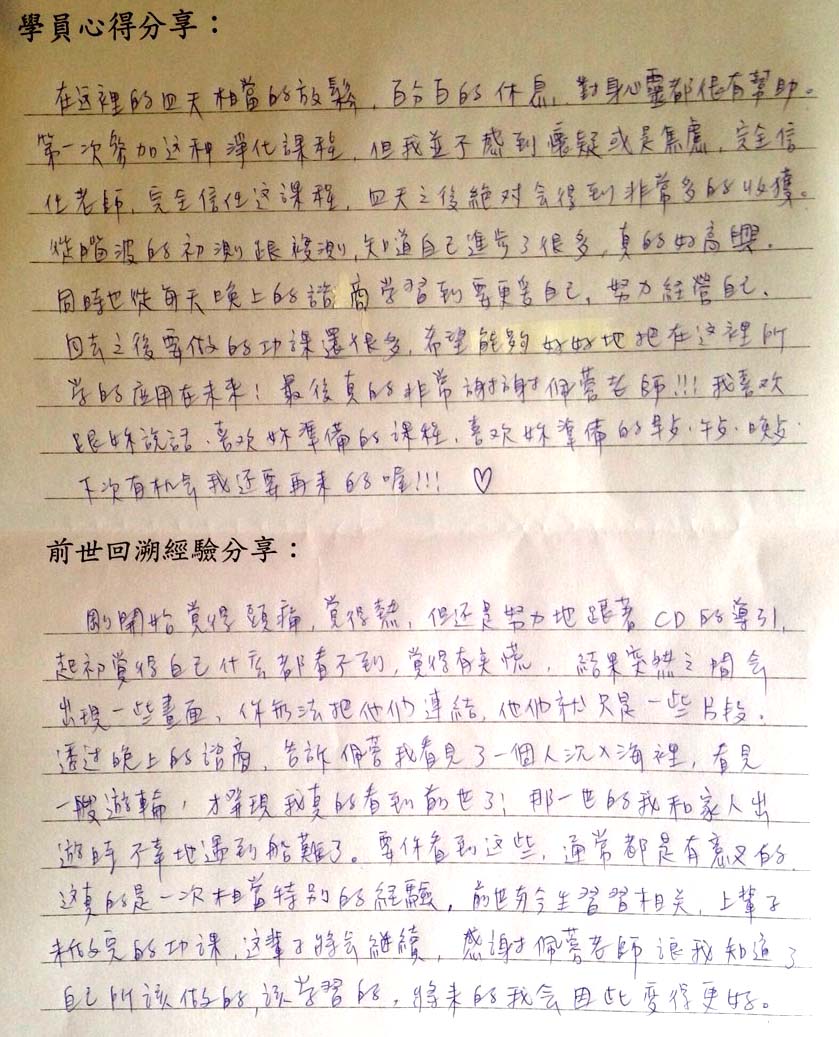 學員心得分享：
在这裡的四天相當的放鬆，百分百的休息，對身心靈都很有幫助。
第一次參加这种淨化課程，但我並不感到懷疑或是焦慮，完全信
任老師，完全信任这課程，四天之後絕对会得到非常多的收獲。
從腦波的初測跟複測，知道自己進步了很多，真的好高興。
同時也從每天晚上的諮商学習到要更愛自己，努力経營自己，
回去之後要做的功課還很多，希望能夠好好地把在这裡所
学的應用在未來！最後真的非常謝謝佩蓉老師!!!我喜欢
跟妳說話、喜欢妳準備的課程、喜欢妳準備的早歺、午歺、晚歺，
下次有机会我还要再来的喔!!! ♡
前世回溯經驗分享：
剛開始覺得頭痛，覺得熱，但还是努力地跟著CD的導引，
起初覺得自己什么都看不到，覺得有矣慌，結果突然之間会
出現一些畫面，你無法把他们連結，他们就只是一些片段。
透过晚上的諮商，告訴佩蓉我看見了一個人沉入海裡，看見
一艘遊輪，才發現我真的看到前世了；那一世的我和家人出
遊時不幸地遇到船難了。要你看到这些，通常都是有意义的
这真的是一次相當特別的経驗，前世与今生習習相关，上輩子
未做完的功課，这輩子將会継續，感謝佩蓉老師讓我知道了
自己所該做的，該学習的，將来的我会因此变得更好。